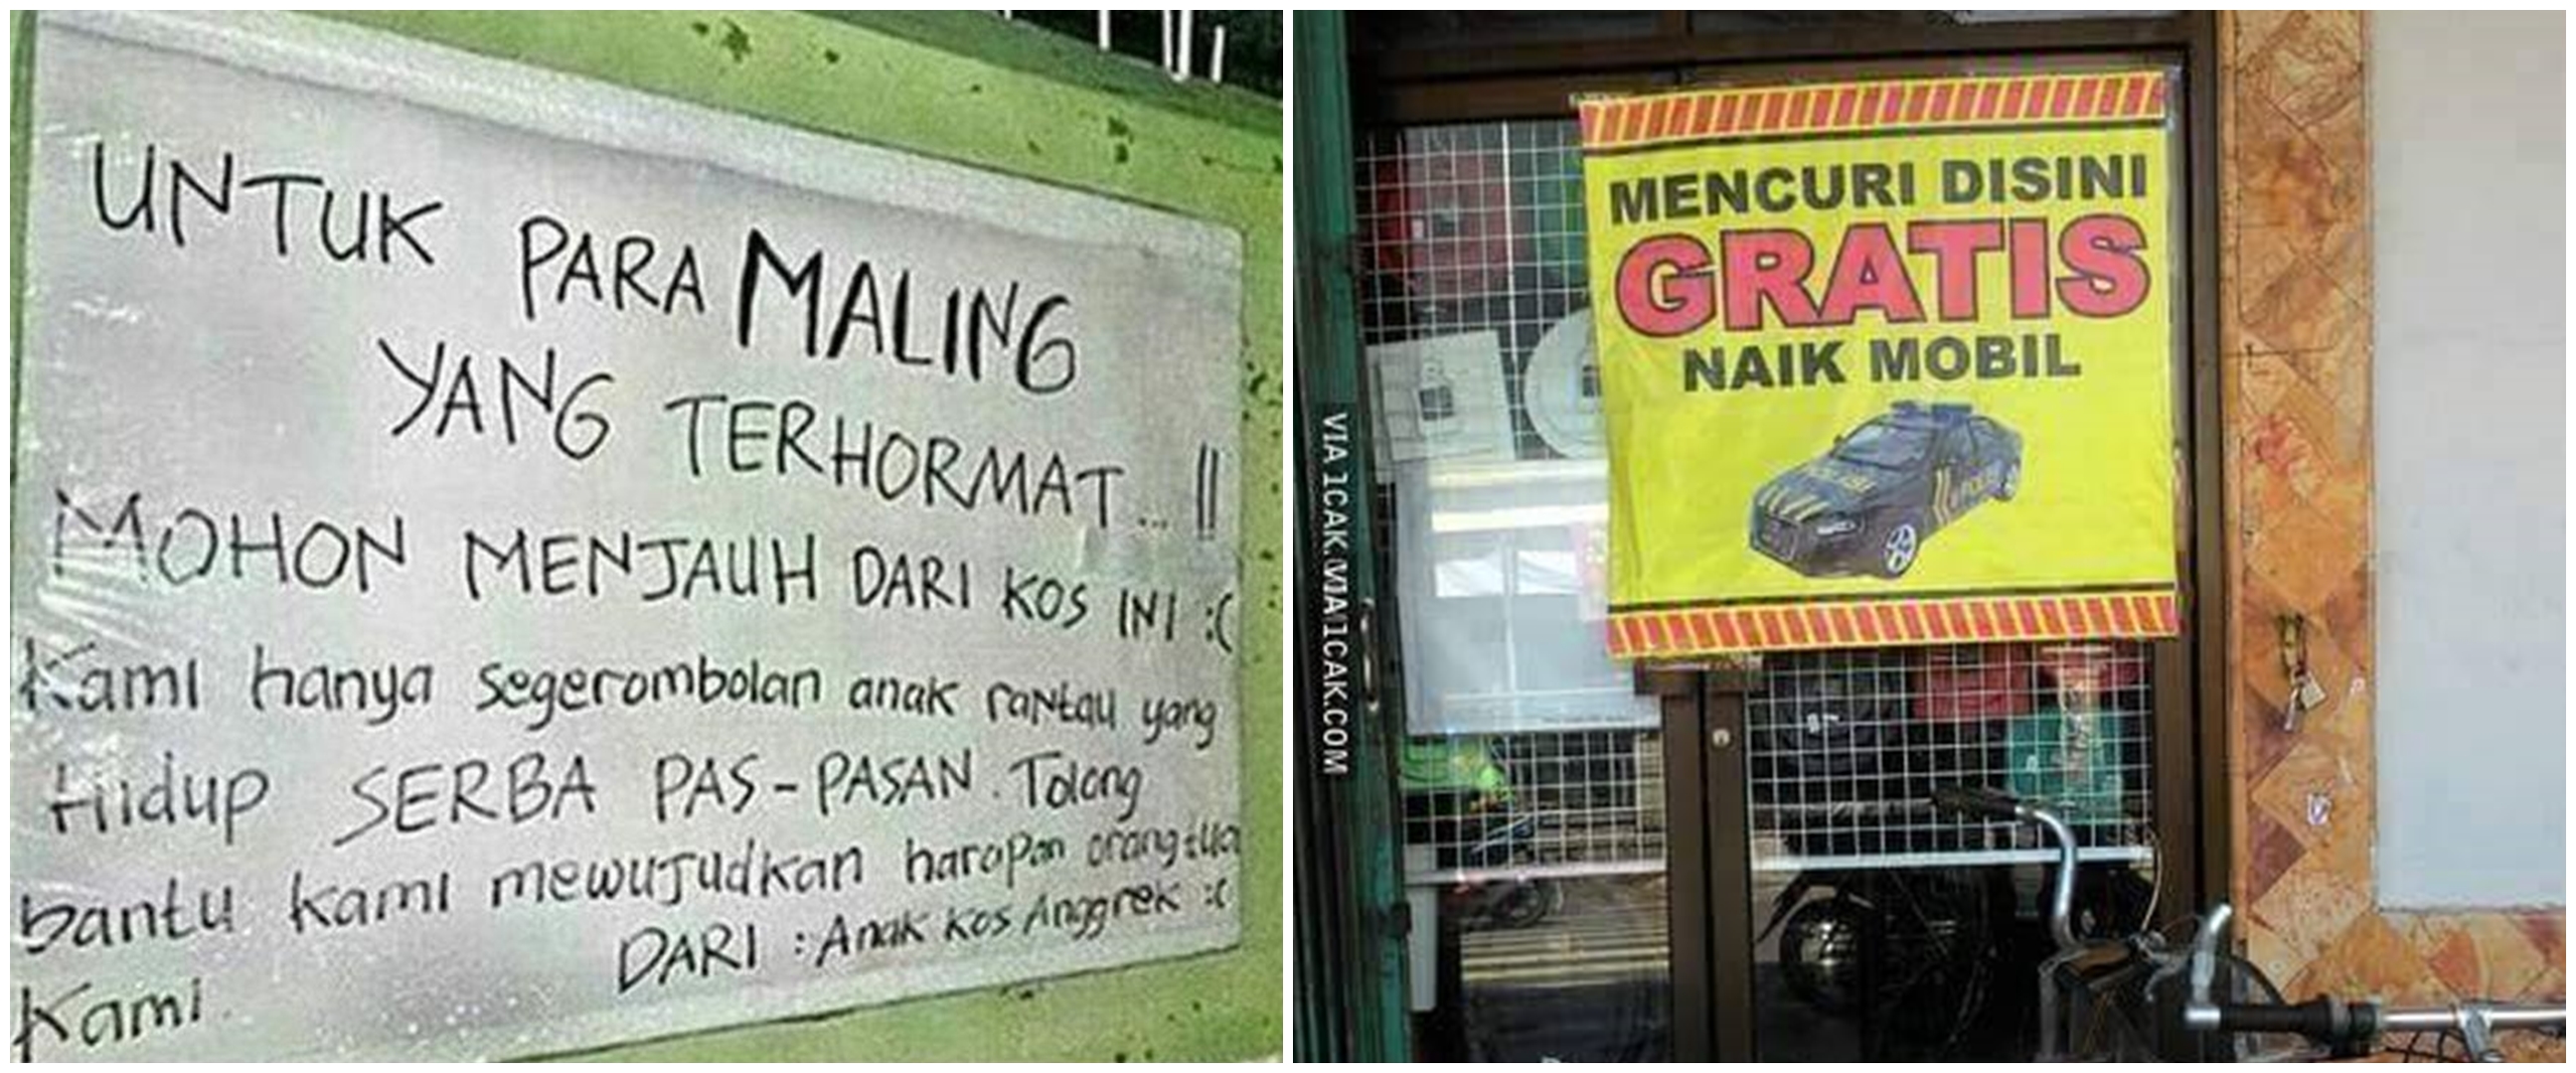 UNTUK PARA MALING
YANG TERHORMAT... !!
MOHON MENJAUH DARI KOS INI :(
Kami hanya segerombolan anak rantau yang
Hidup SERBA PAS-PASAN. Tolong
bantu kami mewujudkan harapan orang tua
Kami.
DARI : Anak kos Anggrek :(
MENCURI DISINI
GRATIS
NAIK MOBIL
VIA 1CAK.COM